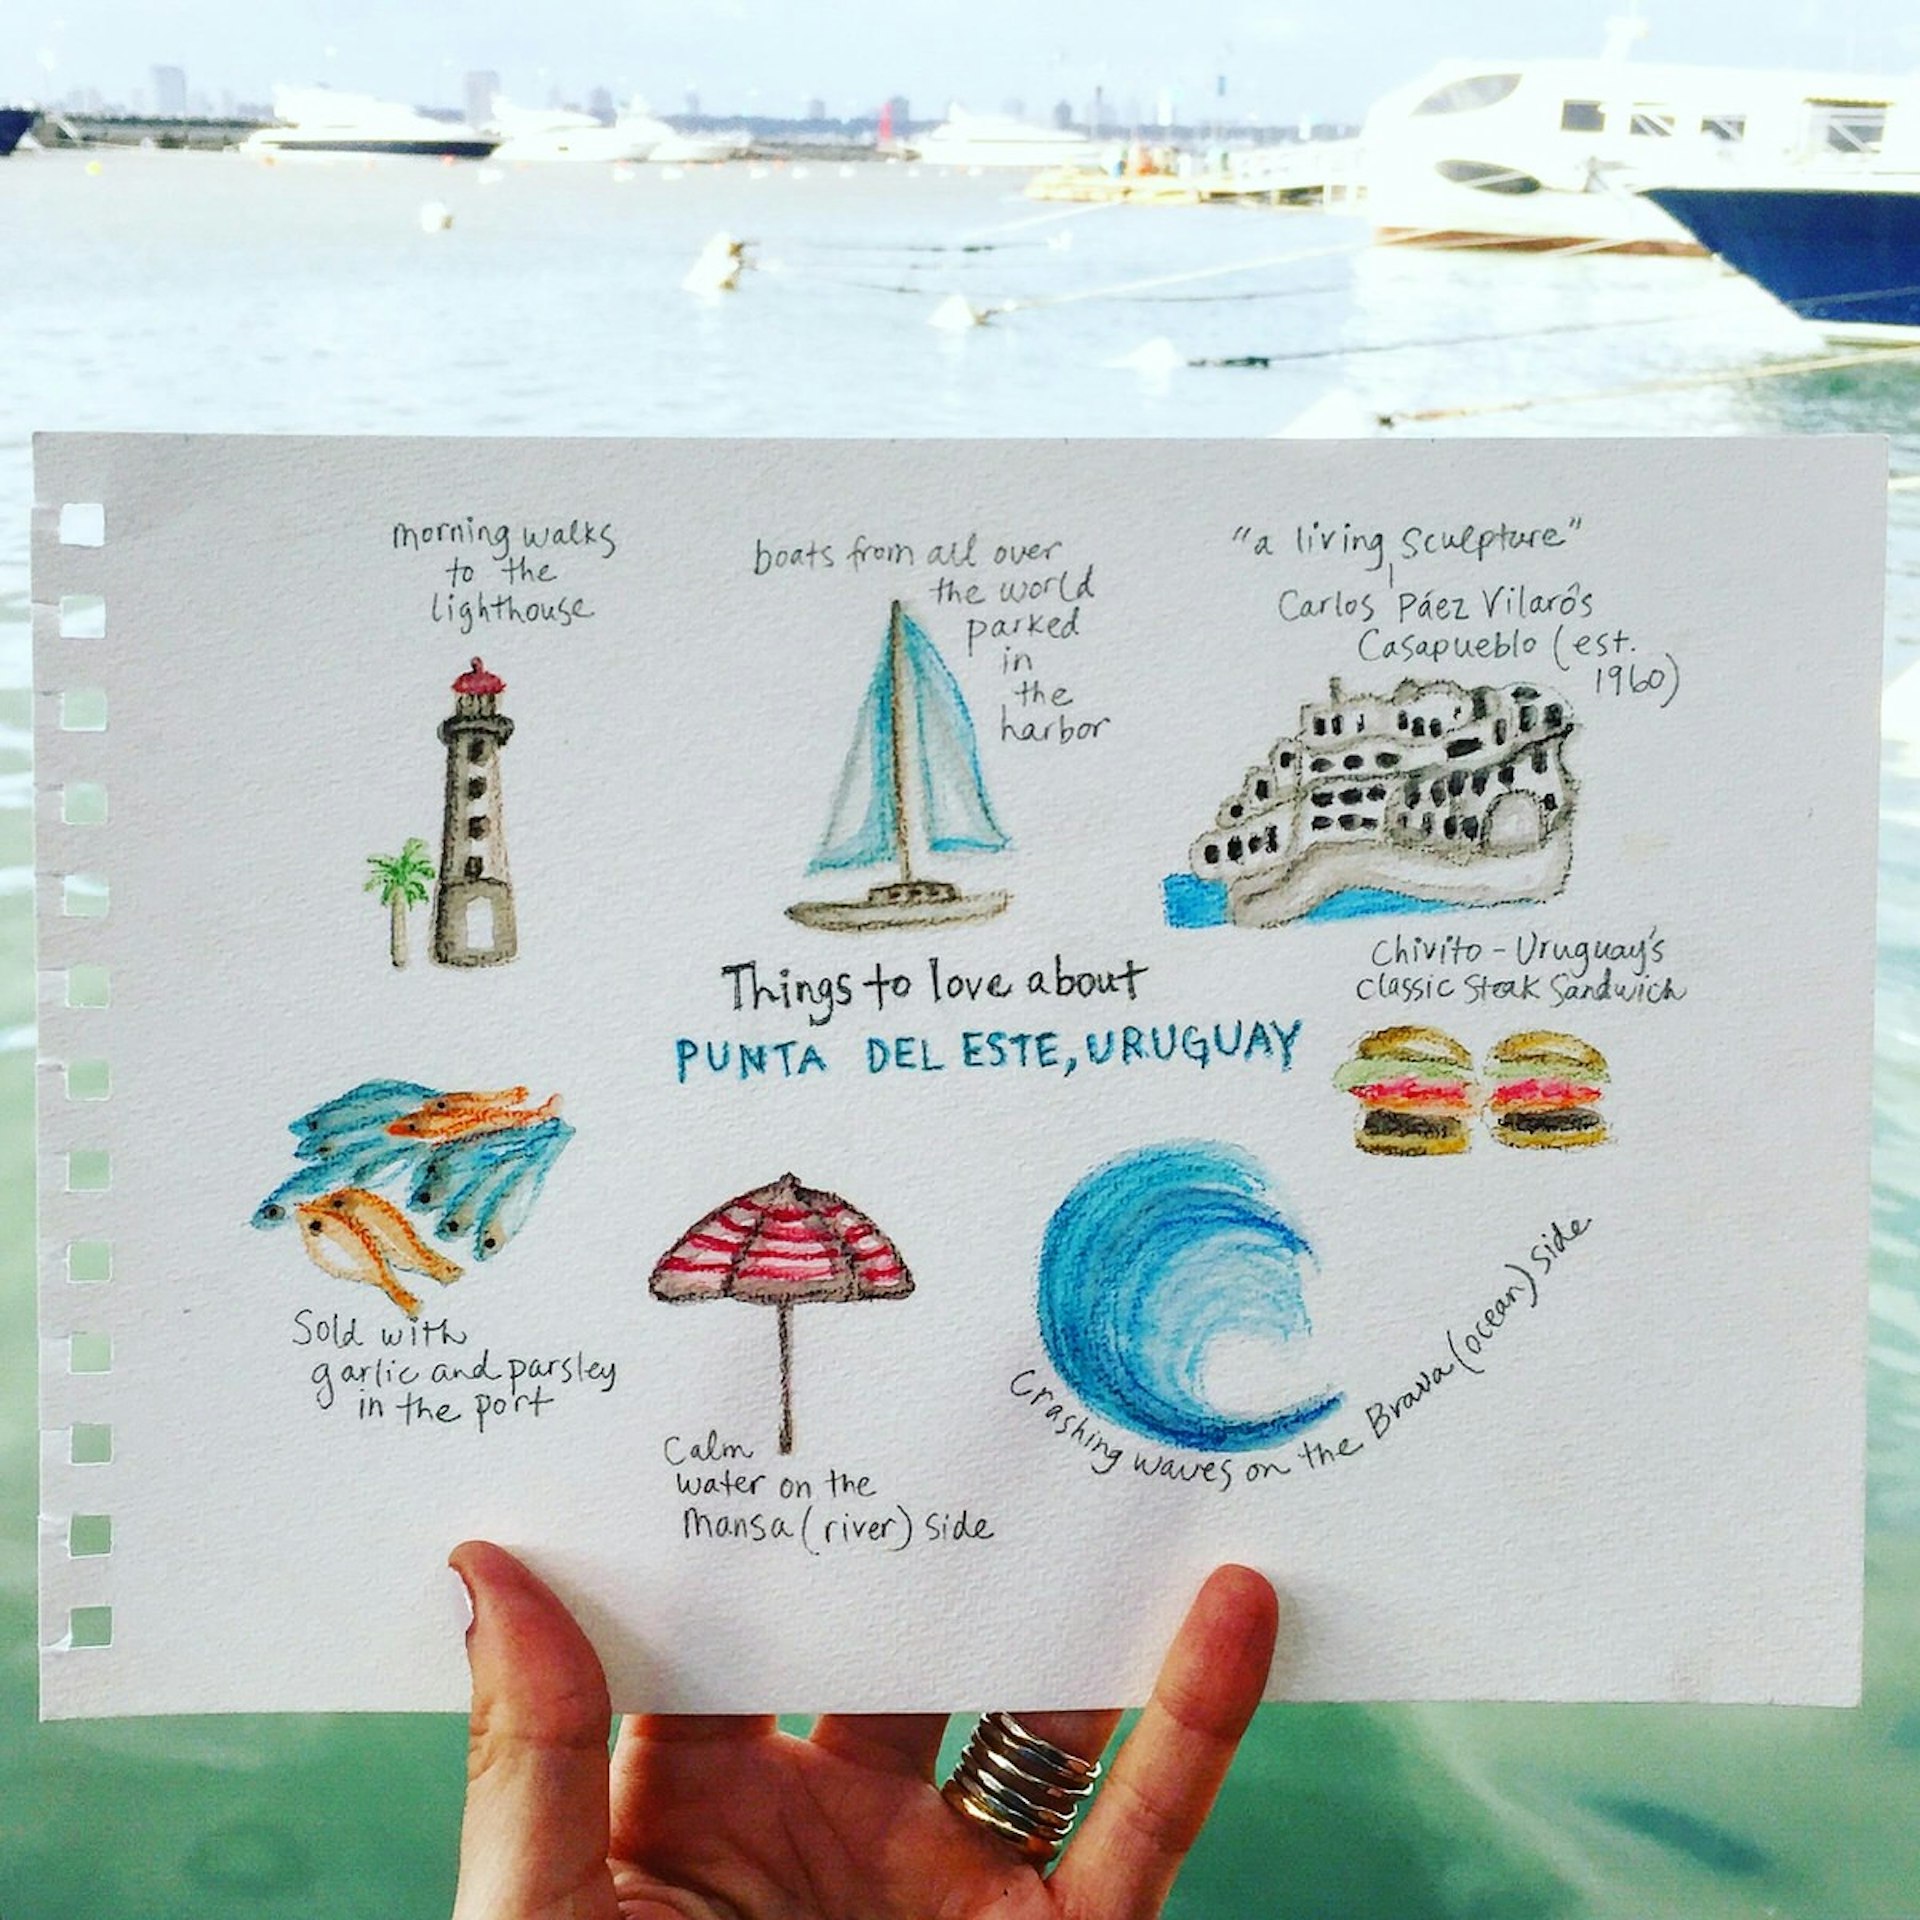 morning walks
to the
lighthouse
boats from all over
the world
parked
in
the
harbor
"a living sculpture"
Carlos Páez Vilaró's
Casapueblo (est.
1960)
Things to love about
PUNTA DEL ESTE, URUGUAY
Chivito - Uruguay's
classic Steak Sandwich
Sold with
garlic and parsley
in the port
Calm
water on the
Mansa (river) side
Crashing waves on the Brava (ocean) side